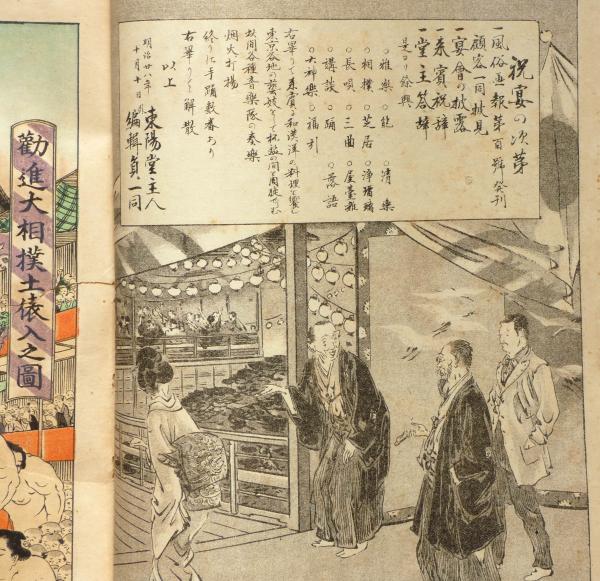 祝宴の次第
一風俗画報第百號発刊
顧客一同披見
一宴會の披露
一来賓祝辞
一堂主答辞
是より餘興
○雅樂○能○清樂
○相撲○芝居○浄瑠璃
○長唄○三曲○屋臺雅
○講談○踊○落語
○大神樂○福引
右畢りて来賓に和漢洋の料理を饗し
東京各地の藝妓をして杯盤の間を周旋せしむ
此間各種音樂隊の奏樂
烟火打揚
終りに手踊数番あり
右畢りて解散
以上
明治廿八年
十月十日
東陽堂主人
編輯員一同
勸進大相撲土俵入之圖